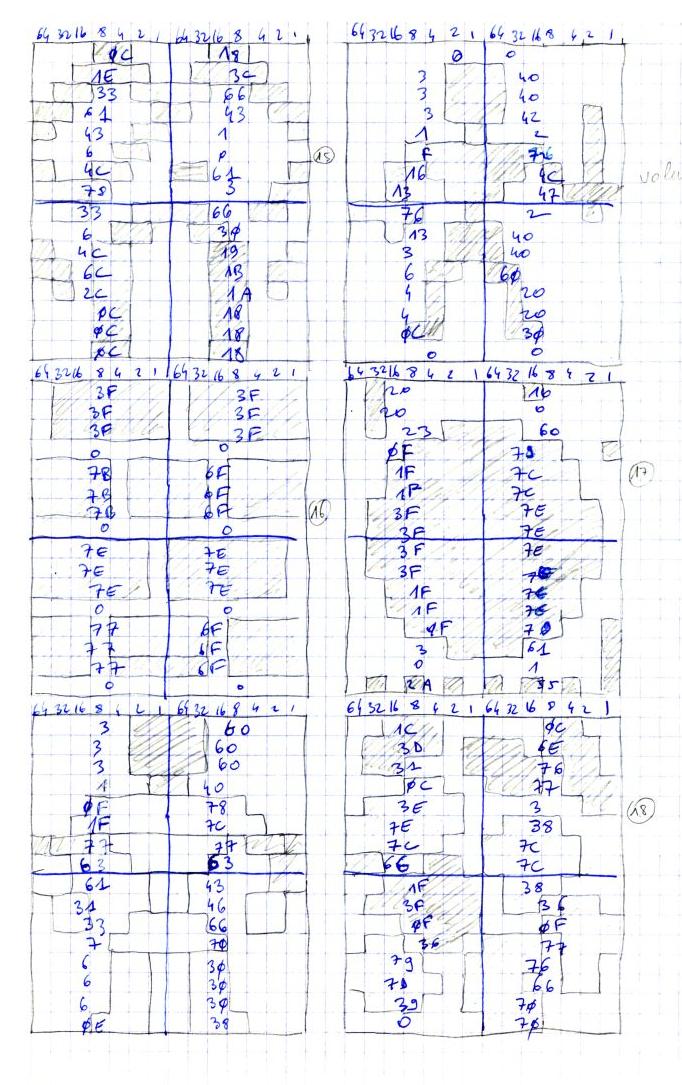 64 32 16 8 4 2 1 64 32 16 8 4 2 1
0C 18
1E 3C
33 66
61 43
43 1
6 0
4C 61
78 3
33 66
6 30
4C 19
6C 1B
2C 1A
0C 18
0C 18
0C 18
15
64 32 16 8 4 2 1 64 32 16 8 4 2 1
0 0
3 40
3 40
3 42
1 2
F
16 4C
13 47
76 2
13 40
3 40
6 60
4 20
4 20
0C 30
0 0
64 32 16 8 4 2 1 64 32 16 8 4 2 1
3F 3F
3F 3F
3F 3F
0 0
7B 6F
7B 6F
7B 6F
0 0
7E 7E
7E 7E
7E 7E
0 0
77 6F
77 6F
77 6F
0 0
16
64 32 16 8 4 2 1 64 32 16 8 4 2 1
20 10
20 0
23 60
0F
1F 7C
1F 7C
3F 7E
3F 7E
3F 7E
3F
1F
1F
0F
3 61
0 1
2A 55
17
64 32 16 8 4 2 1 64 32 16 8 4 2 1
3 60
3 60
3 60
1 40
0F 78
1F 7C
77 77
63 63
61 43
31 46
33 66
7 70
6 30
6 30
6 30
0E 38
64 32 16 8 4 2 1 64 32 16 8 4 2 1
1C 0C
3D 6E
31 76
0C 77
3E 3
7E 38
7C 7C
66 7C
1F 38
3F 36
0F 0F
36 77
79 76
79 66
39 70
0 70
18